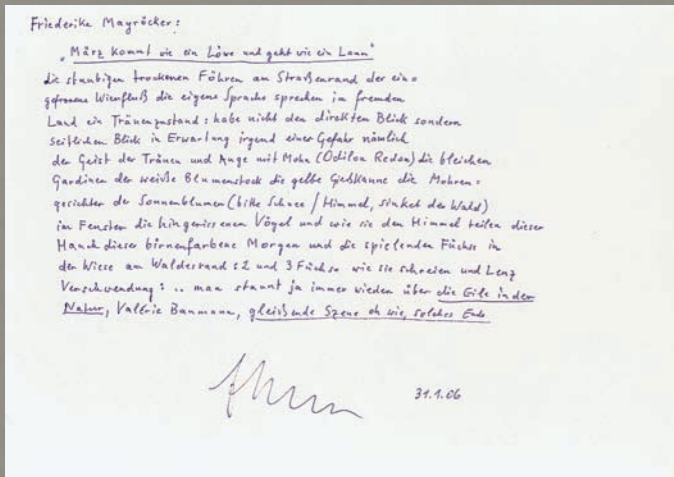 Friederike Mayröcker:
„März kommt wie ein Löwe und geht wie ein Lamm"
die staubigen trockenen Föhren am Straßenrand der ein=
gefrorene Wienfluß die eigene Sprache sprechen im fremden
Land ein Tränenzustand: habe nicht den direkten Blick sondern
seitlichen Blick in Erwartung irgend einer Gefahr nämlich
der Geist der Tränen und Auge mit Mohn (Odilon Redon) die bleichen
Gardinen der weiße Blumenstock die gelbe Gießkanne die Mohren=
gesichter der Sonnenblumen (bitte Schnee / Himmel, sinket der Wald)
im Fenster die hingerissenen Vögel und wie sie den Himmel teilen dieser
Hauch dieser birnenfarbene Morgen und die spielenden Füchse in
der Wiese am Waldesrand: 2 und 3 Füchse wie sie schreien und Lenz
Verschwendung: .. man staunt ja immer wieder über die Eile in der
Natur, Valérie Baumann, gleißende Szene oh wie, solches Ende
31.1.06